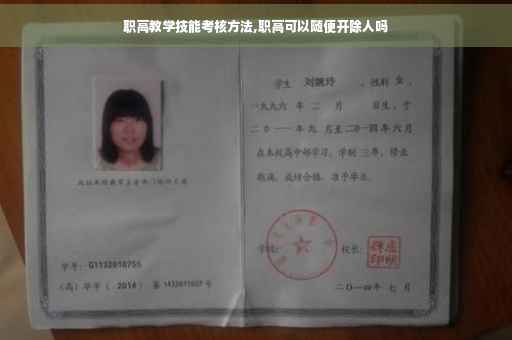 职高教学技能考核方法,职高可以随便开除人吗
学生 刘婉玲 ，性别 女 ，
一九九六 年 二 月 日生，于
二〇一一 年 九 月至二〇一四年 六 月
在本校高中部学习，学制 三 年，修业
期满，成绩合格，准予毕业。
学号：G1132010755
（高）毕字（ 2014 ）第 1432011027 号
校长：
二〇一四年 七 月